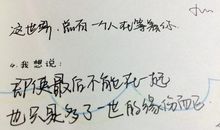 这世界，总有一个人在等着你
4.我想说：
即使最后不能在一起
也只是多了一世的缘伤而已